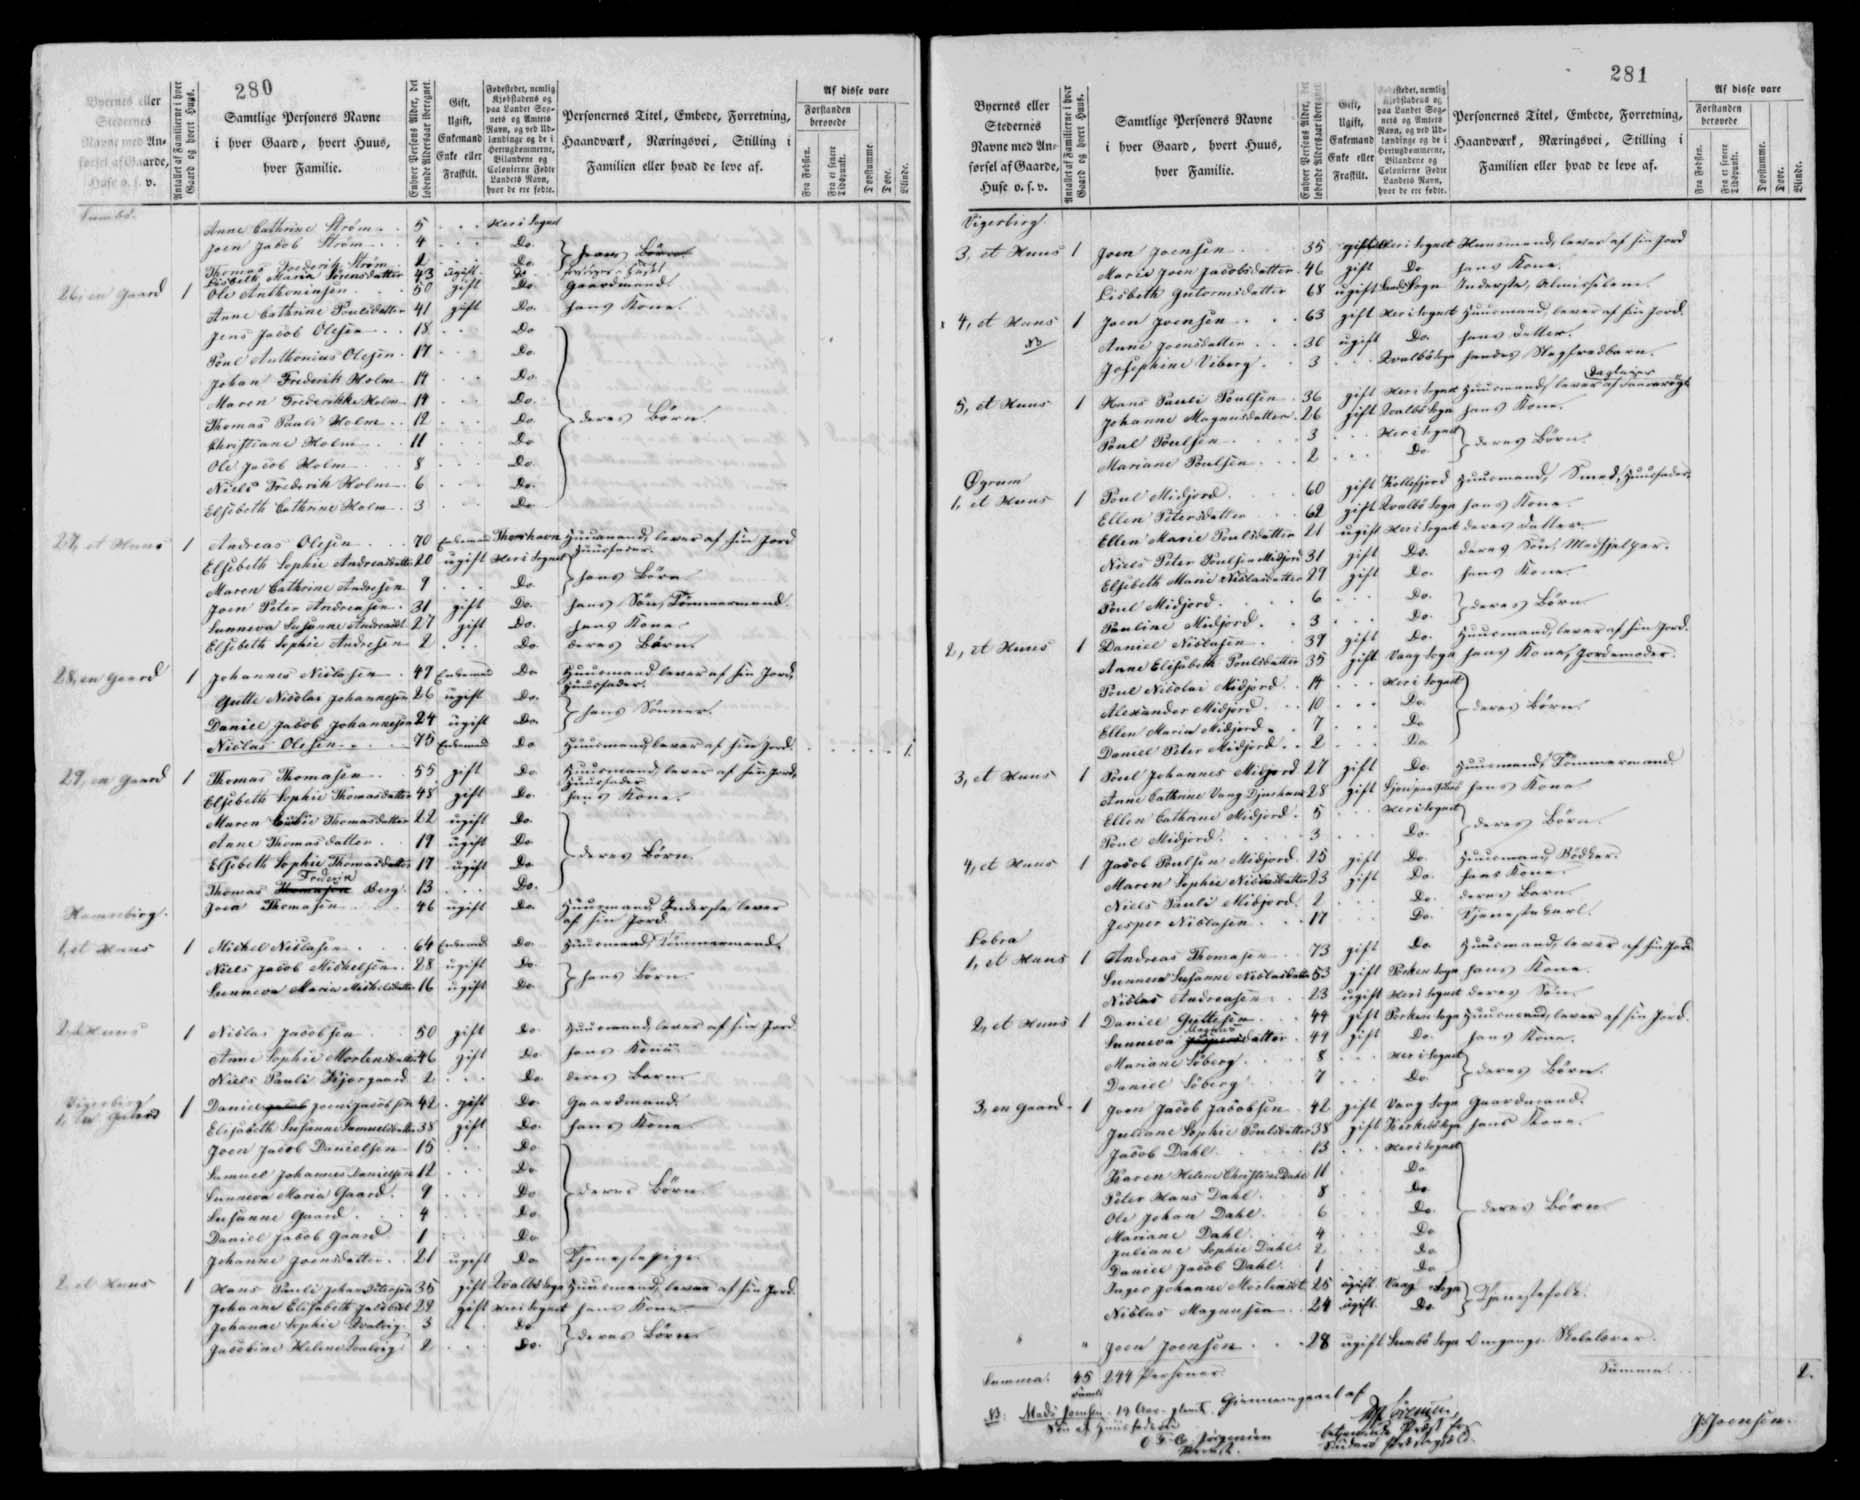 280
Byernes eller Stedernes Navne med Anførsel af Gaarde, Huse o. s. v.
Antallet af Familierne i hver Gaard og hvert Huus.
Samtlige Personers Navne i hver Gaard, hvert Huus, hver Familie.
Enhver Persons Alder, det løbende Aldersaar iberegnet.
Gift, Ugift, Enkemand Enke eller Fraskilt.
Fødestedet, nemlig Kjøbstadens og paa Landet Sognets og Amtets Navn, og ved Udlændinge og de i Hertugdømmerne, Bilandene og Colonierne Fødte Landets Navn, hvor de ere fødte.
Personernes Titel, Embede, Forretning, Haandværk, Næringsvei, Stilling i Familien eller hvad de leve af.
Af disse vare
Forstanden berovede
Fra Fødslen.
Fra et senere Tidspunkt.
Døvstumme.
Døve.
Blinde.
Anne Cathrine Strøm 5 Heri Sognet
Joen Jacob Strøm 4 Do.
Thomas Frederik Strøm 2 Do. hans Børn
Lisbeth Maria Sørensdatter 43 ugift Do.
26, en Gaard 1 Ole Anthoniusen 50 gift Do. Gaardmand
Anne Cathrine Poulsdatter 41 gift Do. hans Kone.
Jens Jacob Olesen 18 Do.
Poul Anthonius Olesen 17 Do.
Johan Frederik Holm 14 Do.
Maren Frederikke Holm 14 Do.
Thomas Pauli Holm 12 Do. deres Børn.
Christiane Holm 11 Do.
Ole Jacob Holm 8 Do.
Niels Frederik Holm 6 Do.
Elsebeth Cathrine Holm 3 Do.
27, et Huus 1 Andreas Olesen 70 Enkemand Thorshavn Huusmand, lever af sin Jord Huusfader.
Elsebeth Sophie Andreasdatter 20 ugift Heri Sognet
Maren Cathrine Andresen 9 Do. hans Børn
Joen Peter Andreasen 31 gift Do. hans Søn, Tømmermand.
Sunneva Susanne Andreasd. 27 gift Do. hans Kone.
Elsebeth Sophie Andresen 2 Do. deres Barn.
28, en Gaard 1 Johannes Niclasen 49 Enkemand Do. Huusmand lever af sin Jord, Huusfader.
Gutte Nicolai Johannesen 26 ugift Do.
Daniel Jacob Johannesen 24 ugift Do. hans Sønner.
Niclas Olesen 75 Enkemand Do. Huusmand, lever af sin Jord. 1.
29, en Gaard 1 Thomas Thomasen 55 gift Do. Huusmand, lever af sin Jord, Huusfader
Elsebeth Sophie Thomasdatter 48 gift Do. hans Kone.
Maren Thomasdatter 22 ugift Do.
Anne Thomasdatter 19 ugift Do.
Elsebeth Sophie Thomasdatter 17 ugift Do. deres Børn.
Frederik
Thomas Thomasen Berg 13 Do.
Joen Thomasen 46 ugift Do. Huusmand Inderste, lever af sin Jord.
1, et Huus 1 Mickel Niclasen 64 Enkemand Do. Huusmand, Tømmermand.
Niels Jacob Mickelsen 28 ugift Do.
Sunneva Maria Mickelsdatter 16 ugift Do. hans Børn.
2, et Huus 1 Niclas Jacobsen 50 gift Do. Huusmand, lever af sin Jord
Anne Sophie Mortensdatter 46 gift Do. hans Kone.
Niels Pauli Kjærgaard 2 Do. deres Barn.
Vigerbirg
1, en Gaard 1 Daniel Joen Jacobsen 42 gift Do. Gaardmand.
Elisabeth Susanne Samuelsdatter 38 gift Do. hans Kone.
Joen Jacob Danielsen 15 Do.
Samuel Johannes Danielsen 12 Do.
Sunneva Maria Gaard 9 Do. deres Børn.
Susanne Gaard 4 Do.
Daniel Jacob Gaard 1 Do.
Johanne Joensdatter 21 ugift Do. Tjenestepige.
2, et Huus 1 Hans Pauli Johan Petersen 35 gift Qvalbø Sogn Huusmand, lever af sin Jord.
Johanne Elisabeth Jacobsd. 29 gift Heri Sognet hans Kone.
Johanne Sophie 3 Do.
Jacobine Helene 2 Do. deres Børn.
281
Byernes eller Stedernes Navne med Anførsel af Gaarde, Huse o. s. v.
Antallet af Familierne i hver Gaard og hvert Huus.
Samtlige Personers Navne i hver Gaard, hvert Huus, hver Familie.
Enhver Persons Alder, det løbende Aldersaar iberegnet.
Gift, Ugift, Enkemand Enke eller Fraskilt.
Fødestedet, nemlig Kjøbstadens og paa Landet Sognets og Amtets Navn, og ved Udlændinge og de i Hertugdømmerne, Bilandene og Colonierne Fødte Landets Navn, hvor de ere fødte.
Personernes Titel, Embede, Forretning, Haandværk, Næringsvei, Stilling i Familien eller hvad de leve af.
Af disse vare
Forstanden berovede
Fra Fødslen.
Fra et senere Tidspunkt.
Døvstumme.
Døve.
Blinde.
Vigerbirg
3, et Huus 1 Joen Joensen 35 gift Heri Sognet Huusmand, lever af sin Jord
Maria Joen Jacobsdatter 46 gift Do. hans Kone.
Lisbeth Gutormsdatter 68 ugift Sogn Inderste, Almisselem.
4, et Huus 1 Joen Joensen 63 gift Heri Sognet Huusmand, lever af sin Jord.
NB Anne Joensdatter 30 ugift Do. hans Datter.
Josephine Viberg 3 Qvalbø Sogn hendes Slegfredbarn.
5, et Huus 1 Hans Pauli Poulsen 36 gift Heri Sognet Huusmand, lever af
Johanne Magnusdatter 26 gift Qvalbø Sogn hans Kone.
Poul Poulsen 3 Heri Sognet
Mariane Poulsen 2 Do. deres Børn.
Øgrum
1, et Huus 1 Poul Midjord 60 gift Kollefjord Huusmand, Smed, Huusfader.
Ellen Petersdatter 62 gift Qvalbø Sogn hans Kone.
Ellen Marie Poulsdatter 21 ugift Heri Sognet deres Datter.
Niels Peter Poulsen Midjord 31 gift Do. deres Søn, Medhjelper.
Elsebeth Marie Niclasdatter 29 gift Do. hans Kone.
Poul Midjord 6 Do.
Pauline Midjord 3 Do. deres Børn.
2, et Huus 1 Daniel Niclasen 39 gift Do. Huusmand, lever af sin Jord.
Anne Elisabeth Poulsdatter 35 gift Vaag Sogn hans Kone, Jordemoder.
Poul Nicolai Midjord 14 Heri Sognet
Alexander Midjord 10 Do. deres Børn.
Ellen Maria Midjord 7 Do.
Daniel Peter Midjord 2 Do.
3, et Huus 1 Poul Johannes Midjord 27 gift Do. Huusmand, Tømmermand.
Anne Cathrine Vang Djurhuus 28 gift hans Kone
Ellen Cathrine Midjord 5 Heri Sognet
Poul Midjord 3 Do. deres Børn.
4, et Huus 1 Jacob Poulsen Midjord 25 gift Do. Huusmand, Bødker.
Maren Sophie Niclasdatter 23 gift Do. hans Kone.
Niels Pauli Midjord 2 Do. deres Barn.
Jesper Niclasen 17 Do. Tjenestekarl.
Lobra
1, et Huus 1 Andreas Thomasen 73 gift Do. Huusmand, lever af sin Jord
Sunneva Susanne Niclasdatter 53 gift Porkere Sogn hans Kone.
Niclas Andreasen 23 ugift Heri Sognet deres Søn.
2, et Huus 1 Daniel Guttesen 44 gift Porkere Sogn Huusmand, lever af sin Jord.
Magnus
Sunneva Jespersdatter 49 gift Do. hans Kone.
Mariane Søberg 8 Heri Sognet
Daniel Søberg 7 Do. deres Børn.
3, en Gaard 1 Joen Jacob Jacobsen 42 gift Vaag Sogn Gaardmand.
Juliane Sophie Poulsdatter 38 gift hans Kone.
Jacob Dahl 13 Heri Sognet
Karen Helene Christine Dahl 11 Do.
Peter Hans Dahl 8 Do.
Ole Johan Dahl 6 Do. deres Børn
Mariane Dahl 4 Do.
Juliane Sophie Dahl 2 Do.
Daniel Jacob Dahl 1 Do.
Inger Johanne Mortensd. 25 ugift Vaag Sogn
Niclas Magnusen 24 ugift Do. Tjenestefolk.
" " Joen Joensen 28 ugift Sumbø Sogn Omgangs Skolelærer.
Summa: 45 244 Personer. Summa 2.
NB: Mads Joensen 19 Aar Gjennemgaaet af
Søn af Huusfaderen
J. Joensen.